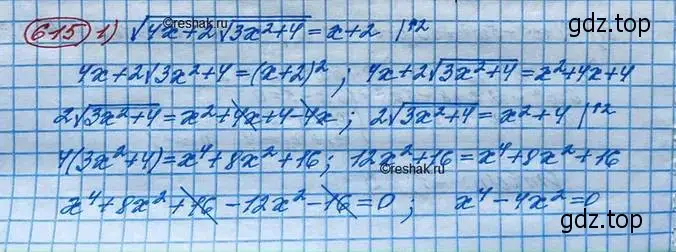 615 1) √(4x+2√(3x²+4)) = x+2 |↑2
©reshak.ru
4x+2√(3x²+4)=(x+2)²; 4x+2√(3x²+4)=x²+4x+4
2√(3x²+4)=x²+4x+4-4x; 2√(3x²+4)=x²+4 |↑2
4(3x²+4)=x⁴+8x²+16; 12x²+16=x⁴+8x²+16
©reshak.ru
x⁴+8x²+16-12x²-16=0; x⁴-4x²=0
gdz.top
gdz.top